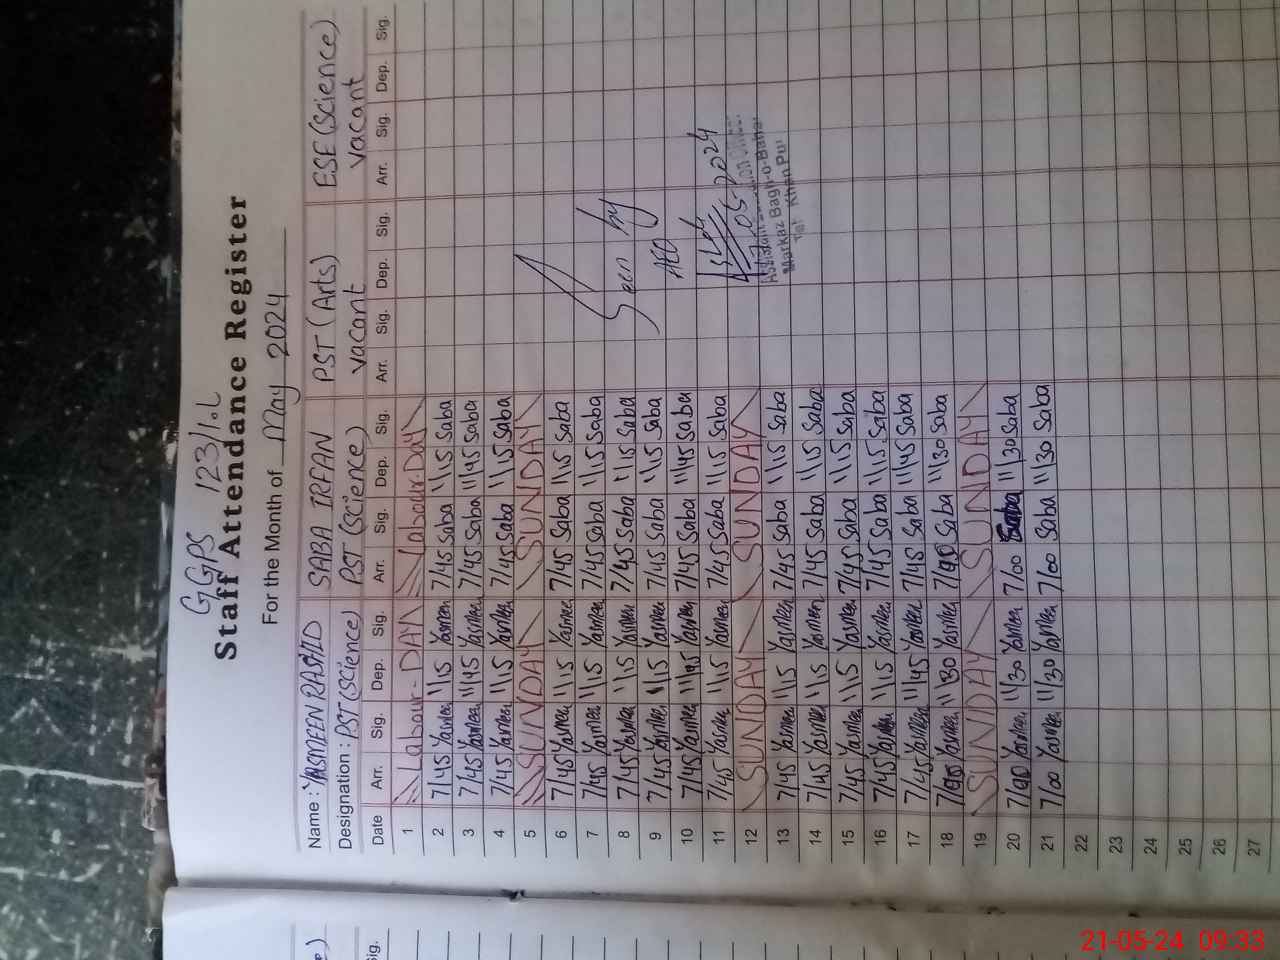 GGPS 123/1.L
Staff Attendance Register
For the Month of May 2024
Name : YASMEEN RASHID SABA IRFAN PST (Arts) ESE (Science)
Designation : PST (science) PST (science) vacant vacant
Date Arr. Sig. Dep. Sig. Arr. Sig. Dep. Sig. Arr. Sig. Dep. Sig. Arr. Sig. Dep. Sig.
1 Labour - DAY Labour Day
2 7/45 Yasmeen 11/15 Yasmeen 7/45 Saba 11/15 Saba
3 7/45 Yasmeen 11/45 Yasmeen 7/45 Saba 11/45 Saba
4 7/45 Yasmeen 11/15 Yasmeen 7/45 Saba 11/15 Saba
5 SUNDAY SUNDAY
6 7/45 Yasmeen 11/15 Yasmeen 7/45 Saba 11/15 Saba
7 7/45 Yasmeen 11/15 Yasmeen 7/45 Saba 11/15 Saba
8 7/45 Yasmeen 11/15 Yasmeen 7/45 Saba 11/15 Saba
Seen by
9 7/45 Yasmeen 11/15 Yasmeen 7/45 Saba 11/15 Saba
AEO
10 7/45 Yasmeen 11/45 Yasmeen 7/45 Saba 11/45 Saba
11 7/45 Yasmeen 11/15 Yasmeen 7/45 Saba 11/15 Saba
12 SUNDAY SUNDAY
05-2024
Markaz Bagh-o-Bahar
Khan Pur
13 7/45 Yasmeen 11/15 Yasmeen 7/45 Saba 11/15 Saba
14 7/45 Yasmeen 11/15 Yasmeen 7/45 Saba 11/15 Saba
15 7/45 Yasmeen 11/15 Yasmeen 7/45 Saba 11/15 Saba
16 7/45 Yasmeen 11/15 Yasmeen 7/45 Saba 11/15 Saba
17 7/45 Yasmeen 11/45 Yasmeen 7/45 Saba 11/45 Saba
18 Yasmeen 11/30 Yasmeen Saba 11/30 Saba
19 SUNDAY SUNDAY
20 Yasmeen 11/30 Yasmeen 7/00 Saba 11/30 Saba
21 7/00 Yasmeen 11/30 Yasmeen 7/00 Saba 11/30 Saba
22
23
24
25
26
27
Sig.
21-05-24 09:33